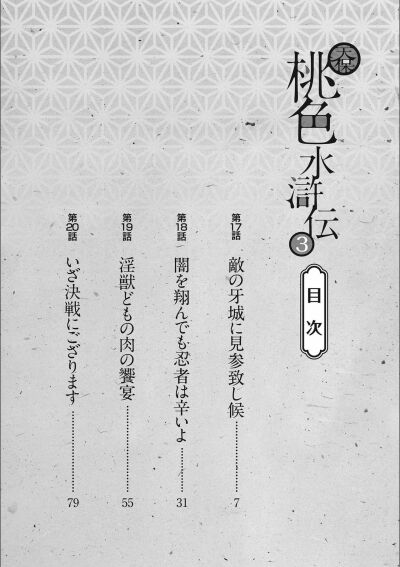 天保
桃色水滸伝
3
目次
第17話
敵の牙城に見参致し候…………7
第18話
闇を翔んでも忍者は辛いよ…………31
第19話
淫獣どもの肉の饗宴…………55
第20話
いざ決戦にござります…………79